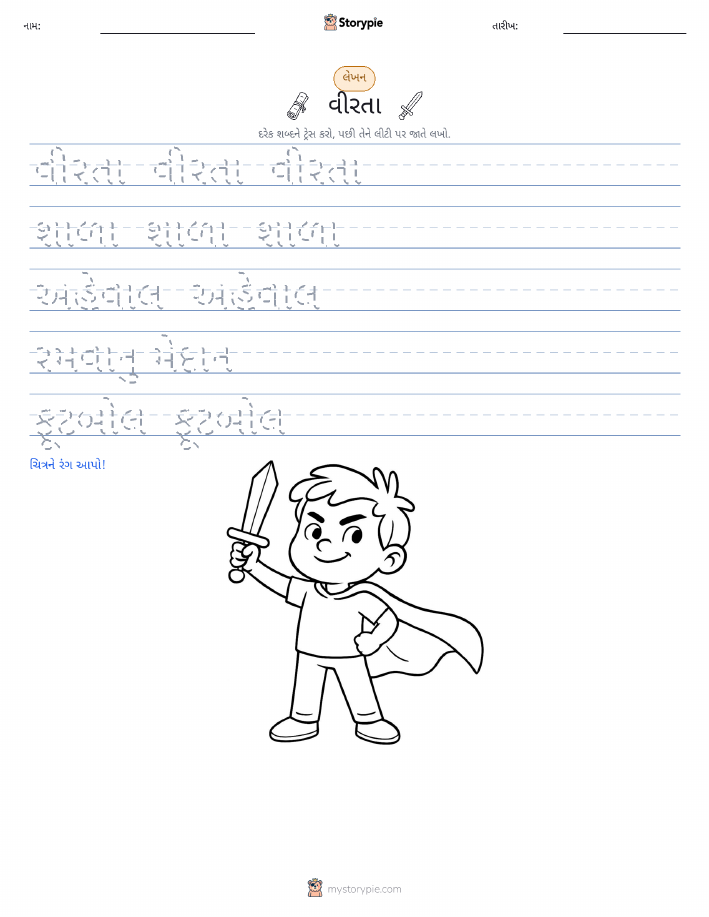 નામ:
Storypie
તારીખ:
લેખન
વીરતા
દરેક શબ્દને ટ્રેસ કરો, પછી તેને લીટી પર જાતે લખો.
વીરતા વીરતા વીરતા
શાળા શાળા શાળા
અહેવાલ અહેવાલ
રમવાનુ મેદાન
ફૂટબોલ ફૂટબોલ
ચિત્રને રંગ આપો!
mystorypie.com